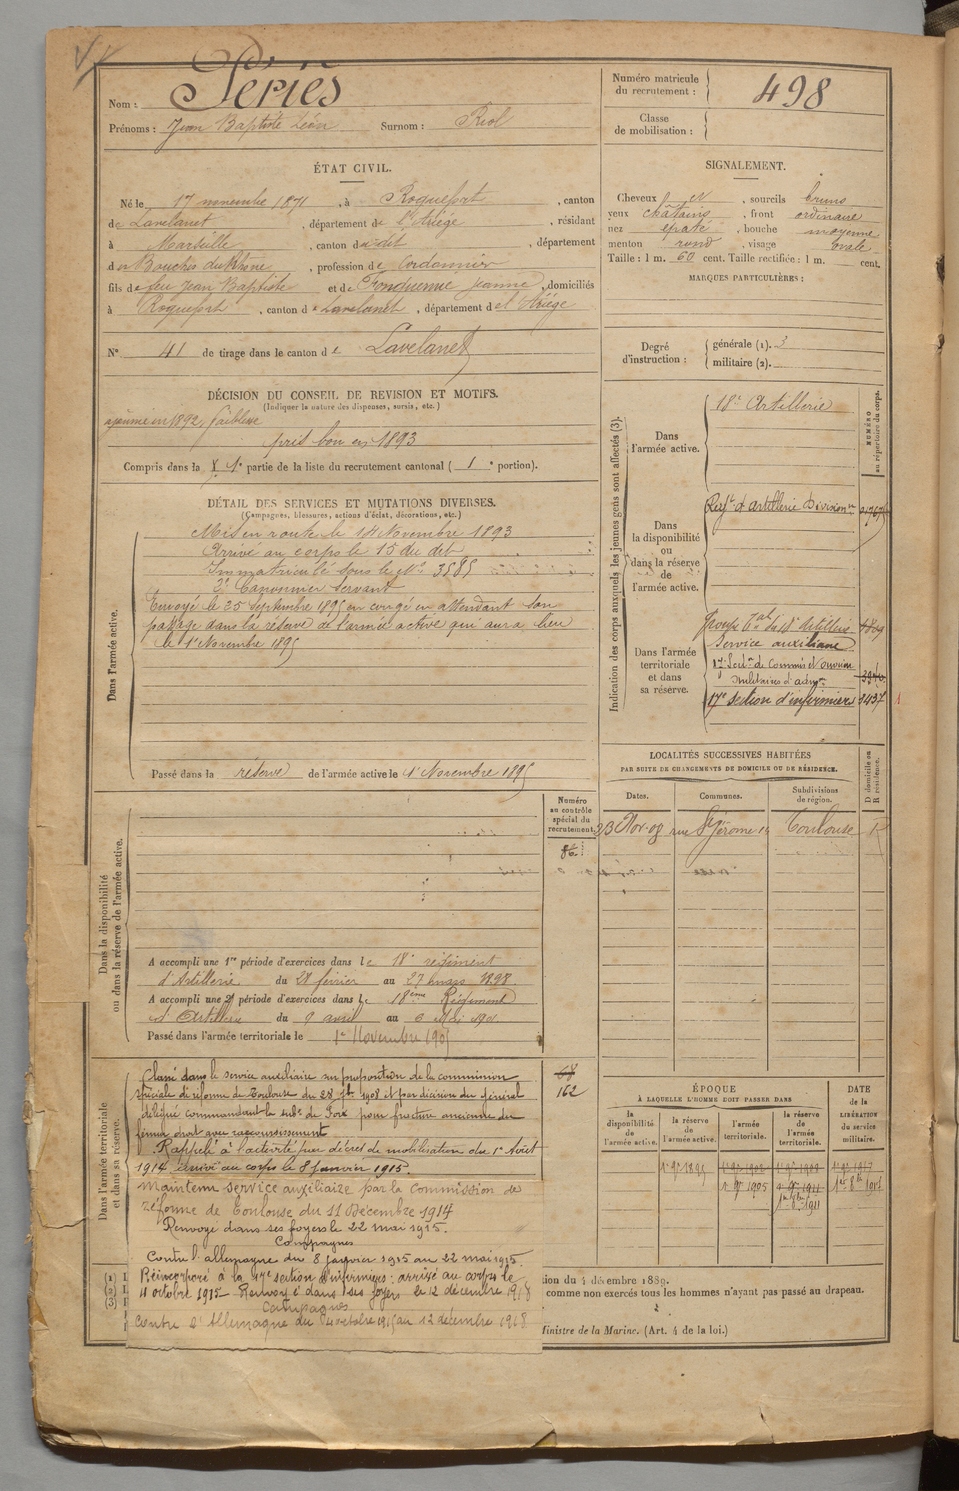 Nom : Peries
Prénoms : Jean Baptiste Léon Surnom : Riol
ÉTAT CIVIL.
Né le 17 novembre 1871, à Roquefort, canton
de Lavelanet, département de l'Ariège, résidant
à Marseille, canton du dit, département
des Bouches du Rhône, profession de Cordonnier
fils de feu Jean Baptiste et de Jeanne, domiciliés
à Roquefort, canton de Lavelanet, département de l'Ariège
N° 41 de tirage dans le canton de Lavelanet
DÉCISION DU CONSEIL DE REVISION ET MOTIFS.
(Indiquer la nature des dispenses, sursis, etc.)
ajourné en 1892, faiblesse
pris bon en 1893
Compris dans la 1e partie de la liste du recrutement cantonal (1e portion).
DÉTAIL DES SERVICES ET MUTATIONS DIVERSES.
(Campagnes, blessures, actions d'éclat, décorations, etc.)
Dans l'armée active.
Mis en route le 14 Novembre 1893
Arrivé au corps le 15 du dit
Immatriculé sous le N° 3585
2e Canonnier Servant
Envoyé le 25 Septembre 1895 en congé en attendant son
passage dans la réserve de l'armée active qui aura lieu
le 1er Novembre 1895
Passé dans la réserve de l'armée active le 1er Novembre 1895
Numéro
au contrôle
spécial du
recrutement.
86
Dans la disponibilité
ou dans la réserve de l'armée active.
A accompli une 1re période d'exercices dans le 18e régiment
d'Artillerie du 28 février au 27 mars 1898
A accompli une 2e période d'exercices dans le 18ème Régiment
d'Artillerie du 9 avril au 6 Mai 1901
Passé dans l'armée territoriale le 1er Novembre 1905
Dans l'armée territoriale
et dans sa réserve.
68
162
Classé dans le service auxiliaire sur proposition de la commission
spéciale de réforme de Toulouse du 28 1908 et par décision du Général
délégué commandant la subd. de Foix pour fracture ancienne du
fémur droit avec raccourcissement
Rappelé à l'activité par décret de mobilisation du 1er Août
1914 arrivé au corps le 8 janvier 1915.
Maintenu service auxiliaire par la Commission de
Réforme de Toulouse du 11 Décembre 1914
Renvoyé dans ses foyers le 22 mai 1915.
Campagnes
Contre l'allemagne du 8 janvier 1915 au 22 mai 1915.
Réincorporé à la 17e section d'infirmiers; arrivé au corps le
4 octobre 1915 – Renvoyé dans ses foyers le 12 décembre 1918
Campagnes
Contre l'Allemagne du 4 octobre 1915 au 12 décembre 1918
(1) I
(2) I
(3) I
Numéro matricule
du recrutement : 498
Classe
de mobilisation :
SIGNALEMENT.
Cheveux et, sourcils bruns
yeux châtains, front ordinaire
nez épaté, bouche moyenne
menton rond, visage ovale
Taille : 1 m. 60 cent. Taille rectifiée : 1 m. cent.
MARQUES PARTICULIÈRES :
Degré
d'instruction :
générale (1). 3
militaire (2).
Indication des corps auxquels les jeunes gens sont affectés (3).
NUMÉRO
au répertoire du corps.
Dans
l'armée active.
18e Artillerie
Dans
la disponibilité
ou
dans la réserve
de
l'armée active.
Regt d'Artillerie Divisionre
Dans l'armée
territoriale
et dans
sa réserve.
Groupe Tal du 18e Artillerie
Service auxiliaire
17e Section de Commis et ouvriers
Militaires d'admon
17e Section d'infirmiers 3437
LOCALITÉS SUCCESSIVES HABITÉES
PAR SUITE DE CHANGEMENTS DE DOMICILE OU DE RÉSIDENCE.
Dates. Communes. Subdivisions
de région.
D domicile ou
R résidence.
23 Nov. 08 rue St Jérome 14 Toulouse R
ÉPOQUE
À LAQUELLE L'HOMME DOIT PASSER DANS
DATE
de la
LIBÉRATION
du service
militaire.
la
disponibilité
de
l'armée active.
la réserve
de
l'armée active.
l'armée
territoriale.
la réserve
de
l'armée
territoriale.
1er 9bre 1895 1er 9bre 1902 1er 9bre 1908 1er 9bre 1917
1er 9bre 1905 1er 9bre 1911 1er 8bre 1917
1er 8bre 1911
tion du 4 décembre 1889.
comme non exercés tous les hommes n'ayant pas passé au drapeau.
Ministre de la Marine. (Art. 4 de la loi.)